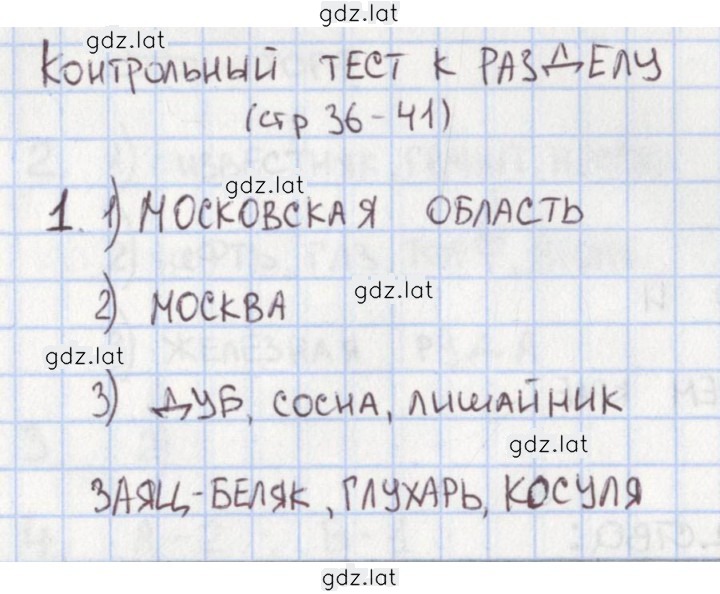 gdz.lat
gdz.lat
КОНТРОЛЬНЫЙ ТЕСТ К РАЗДЕЛУ
(стр 36-41)
gdz.lat
1. 1) МОСКОВСКАЯ ОБЛАСТЬ
gdz.lat
2) МОСКВА
gdz.lat
3) ДУБ, СОСНА, ЛИШАЙНИК
gdz.lat
ЗАЯЦ-БЕЛЯК, ГЛУХАРЬ, КОСУЛЯ
gdz.lat